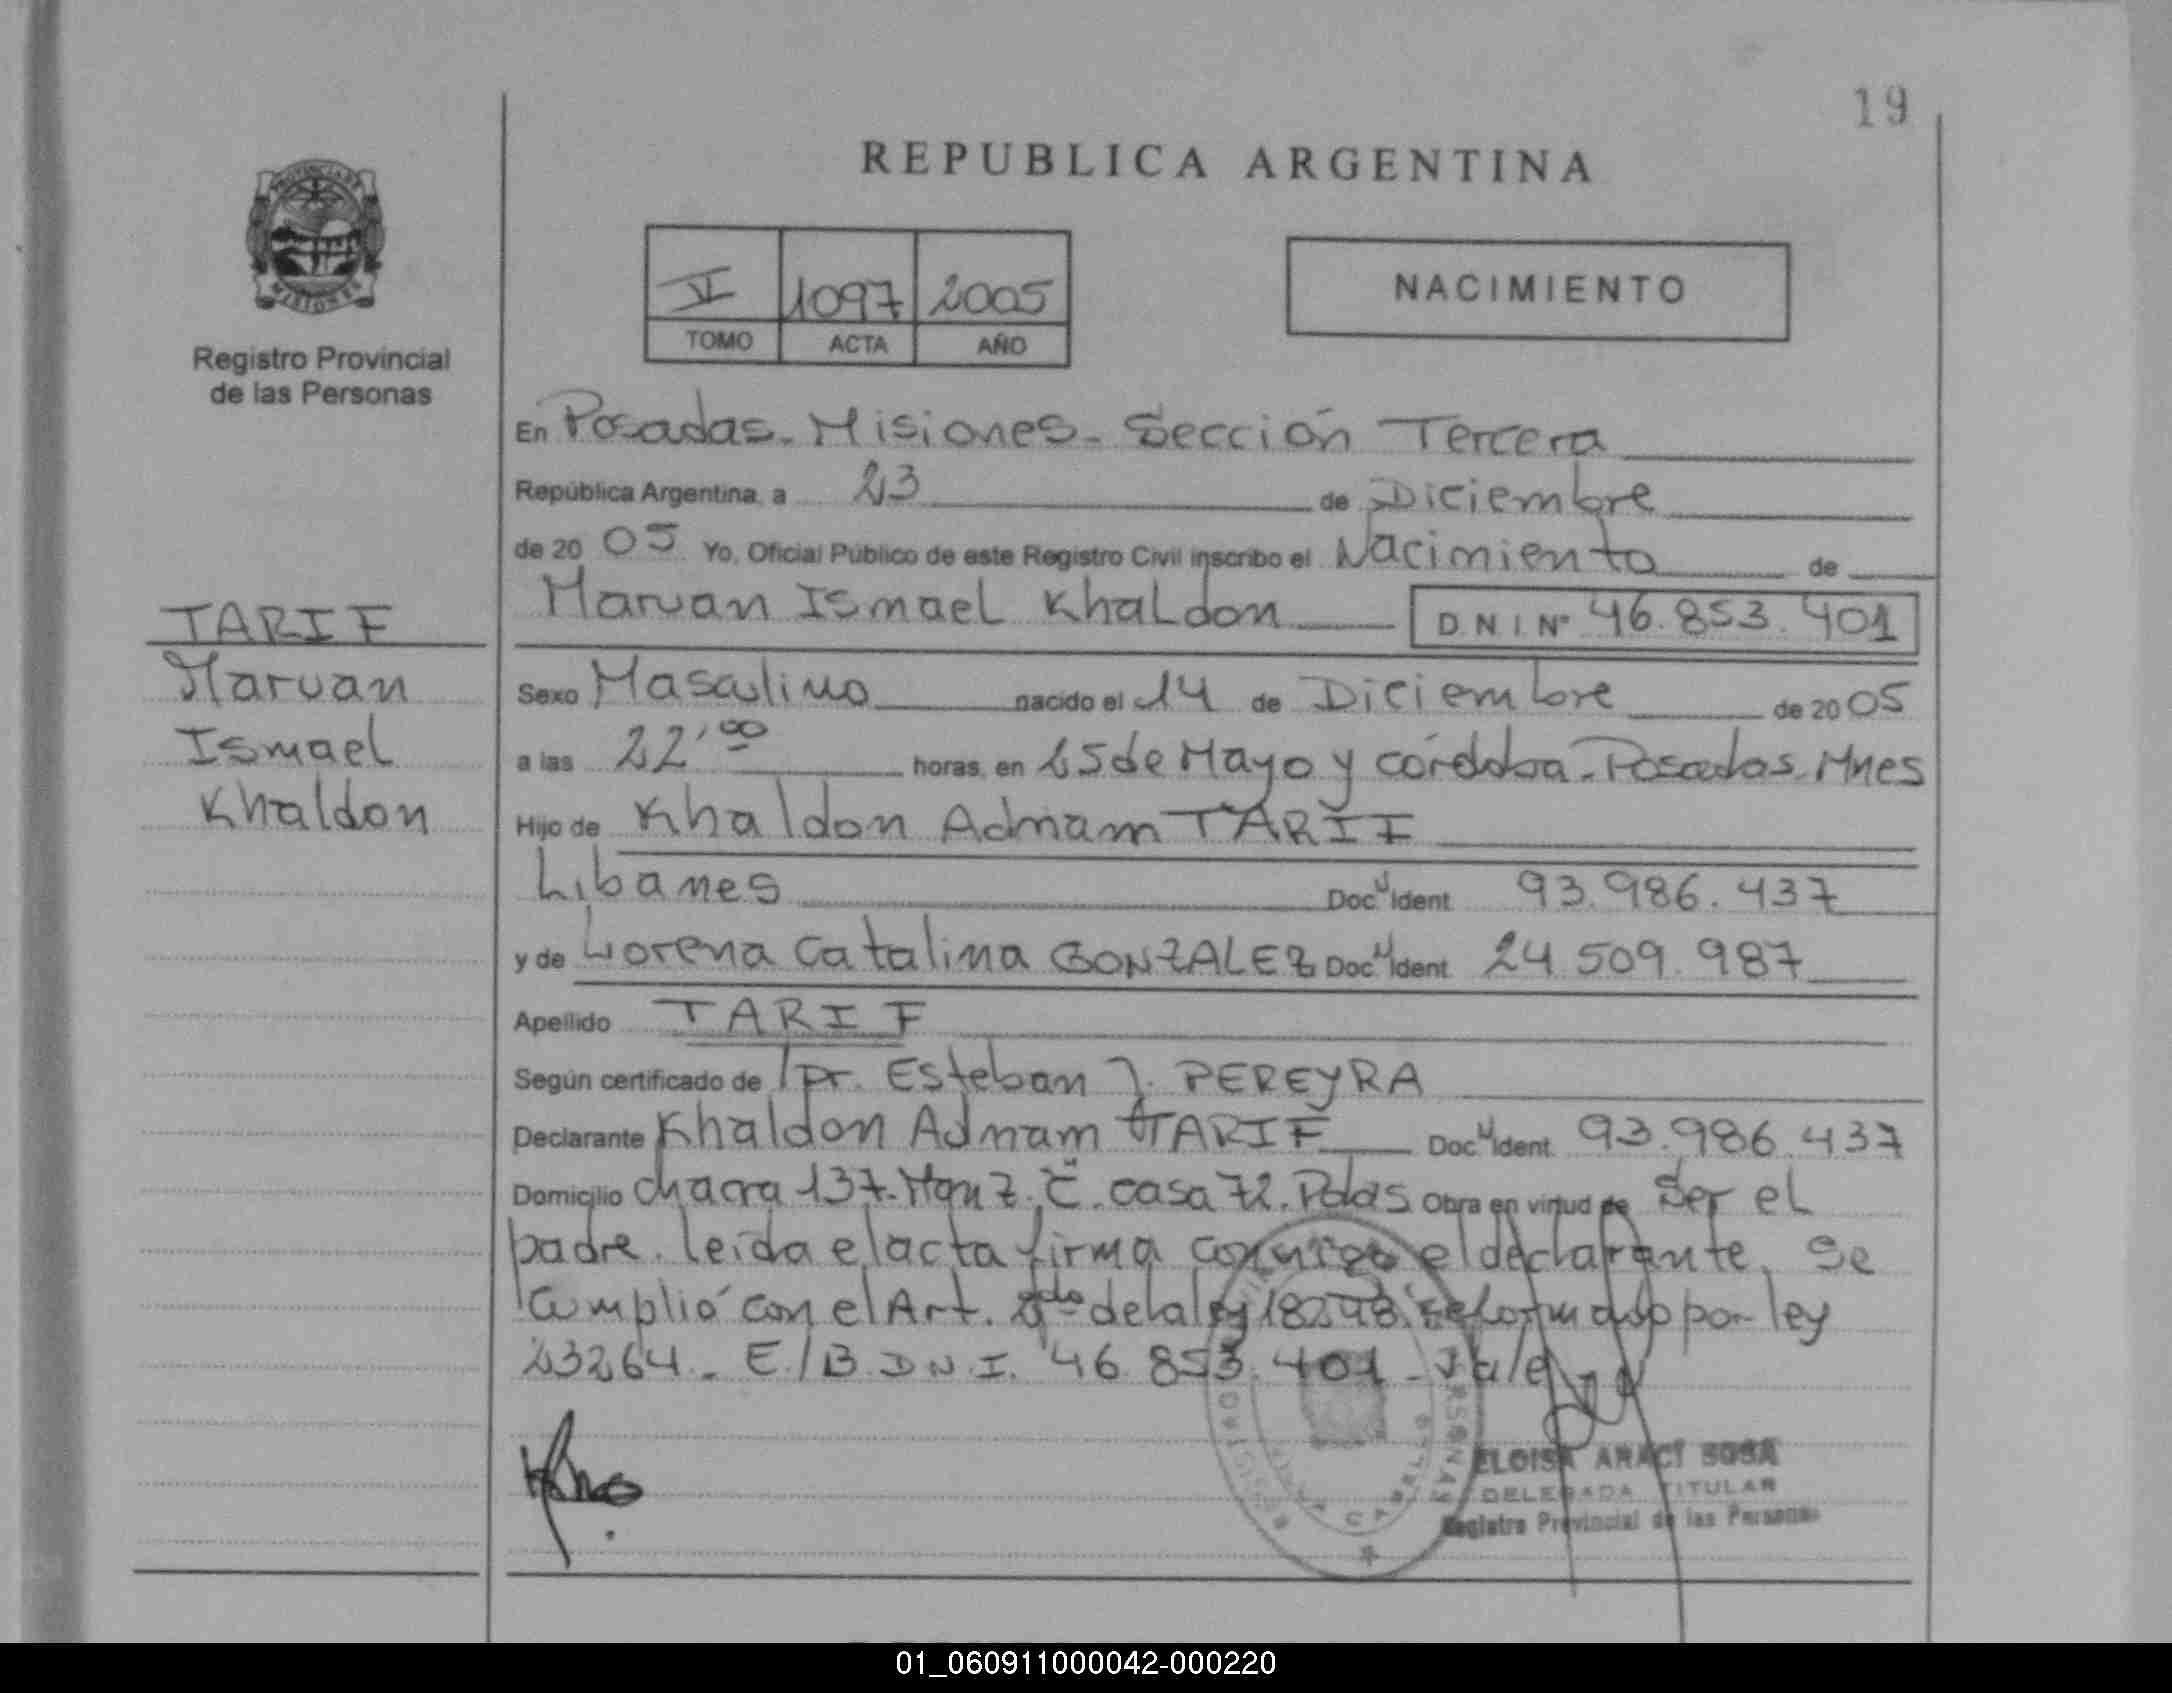 19
REPUBLICA ARGENTINA
PROVINCIA DE
MISIONES
Registro Provincial
de las Personas
VI 1097 2005
TOMO ACTA AÑO
NACIMIENTO
En Posadas - Misiones - Sección Tercera
República Argentina, a 23 de Diciembre
de 20 05 Yo, Oficial Público de este Registro Civil inscribo el Nacimiento de
Maruan Ismael Khaldon D.N.I. Nº 46.853.401
TARIF
Maruan
Ismael
Khaldon
Sexo Masculino nacido el 14 de Diciembre de 20 05
a las 22'00 horas, en 25 de Mayo y córdoba - Posadas - Mnes
Hijo de Khaldon Adnam TARIF
Libanes Doc. Ident. 93.986.437
y de Lorena Catalina GONZALEZ Doc. Ident. 24 509.987
Apellido TARIF
Según certificado de Dr. Esteban J. PEREYRA
Declarante Khaldon Adnam TARIF Doc. Ident. 93.986.437
Domicilio chacra 137. Manz. C. casa 72. Pdas Obra en virtud de Ser el
padre. leida el acta firma conmigo el declarante. Se
Cumplió con el Art. de la ley 18248 reformado por ley
23264 - E/B. D.N.I. 46.853.401 - Vale
ELOISA ARACI SOSA
DELEGADA TITULAR
Registro Provincial de las Personas
01_060911000042-000220